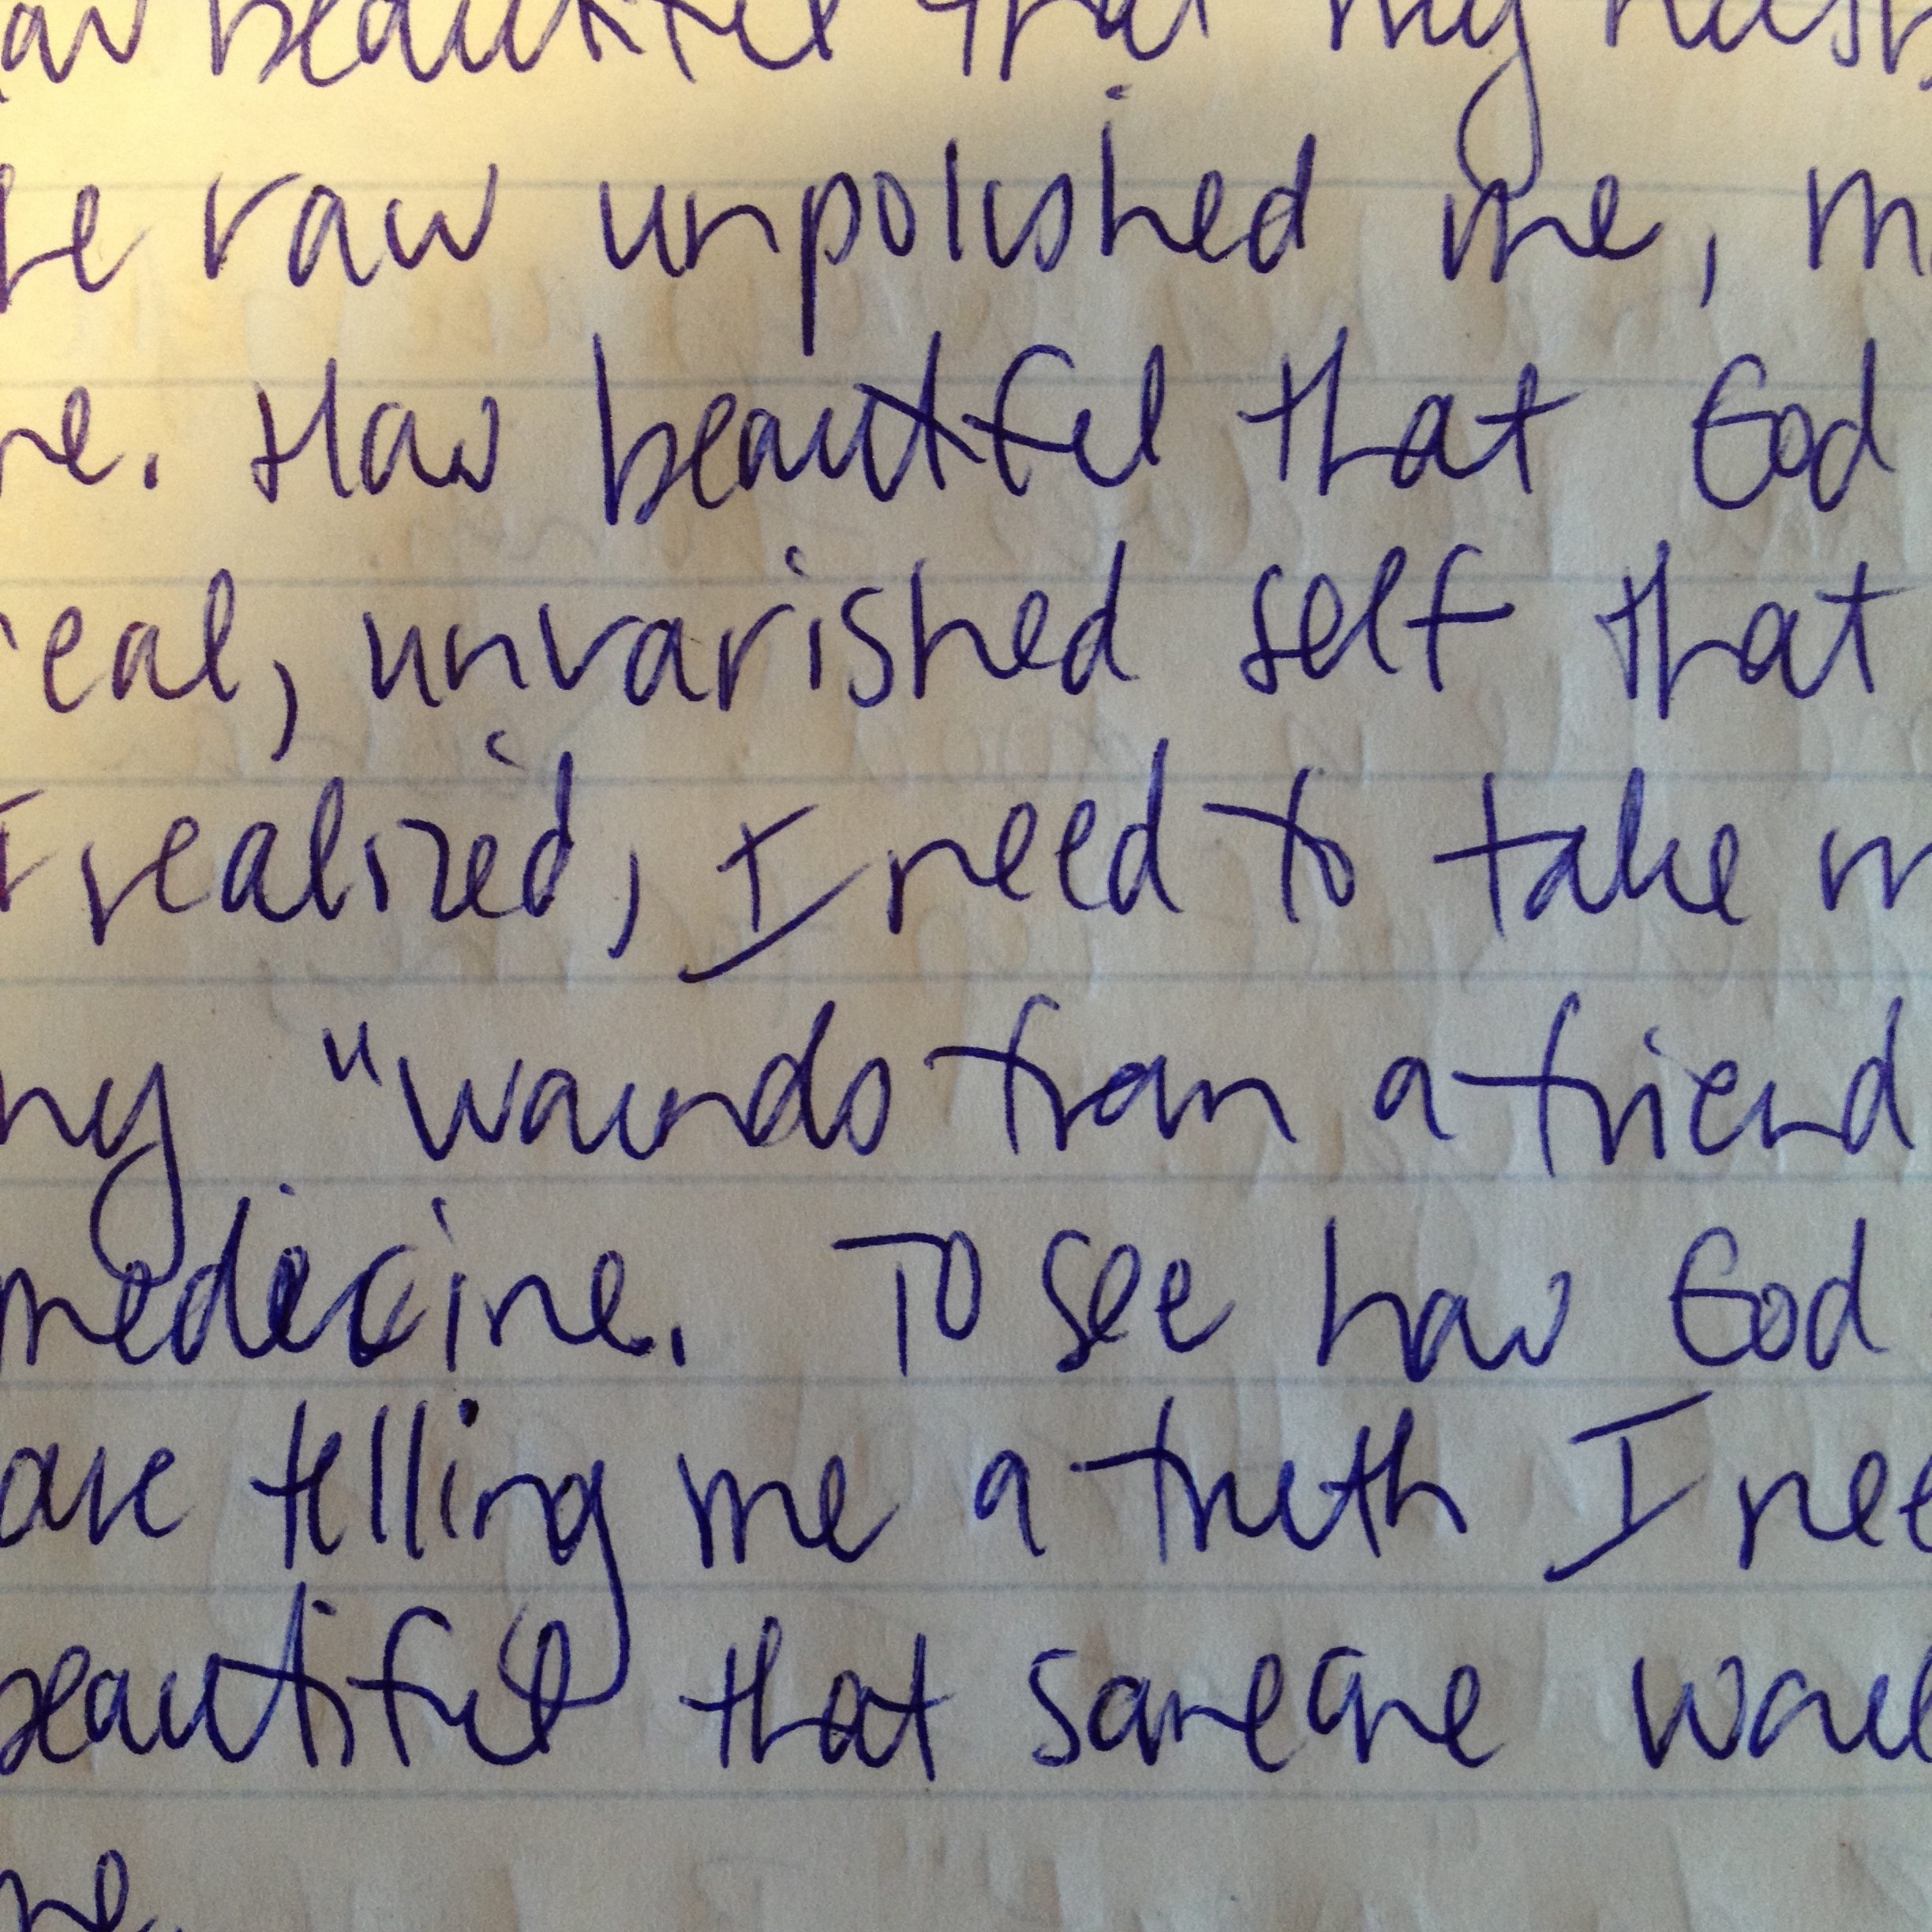 how beautiful that my husb
the raw unpolished me, m
me. How beautiful that God
real, unvarished self that
I realized, I need to take m
my "wounds from a friend
medicine. To see how God
are telling me a truth I nee
beautiful that someone woul
me